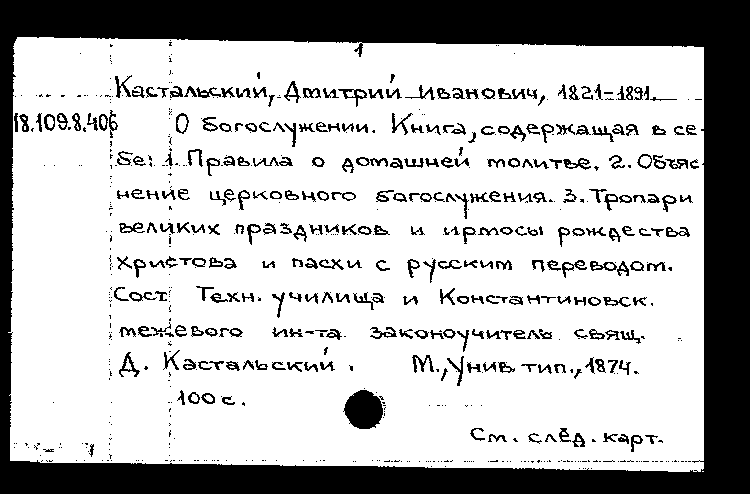 1
Кастальский, Дмитрий Иванович, 1821-1891.
18.109.8.406 О богослужении. Книга, содержащая в се-
бе: 1. Правила о домашней молитве. 2. Объяс-
нение церковного богослужения. 3. Тропари
великих праздников и ирмосы рождества
христова и пасхи с русским переводом.
Сост. Техн. училища и Константиновск.
межевого ин-та законоучитель свящ.
Д. Кастальский. М., Унив. тип., 1874.
100 с.
См. след. карт.